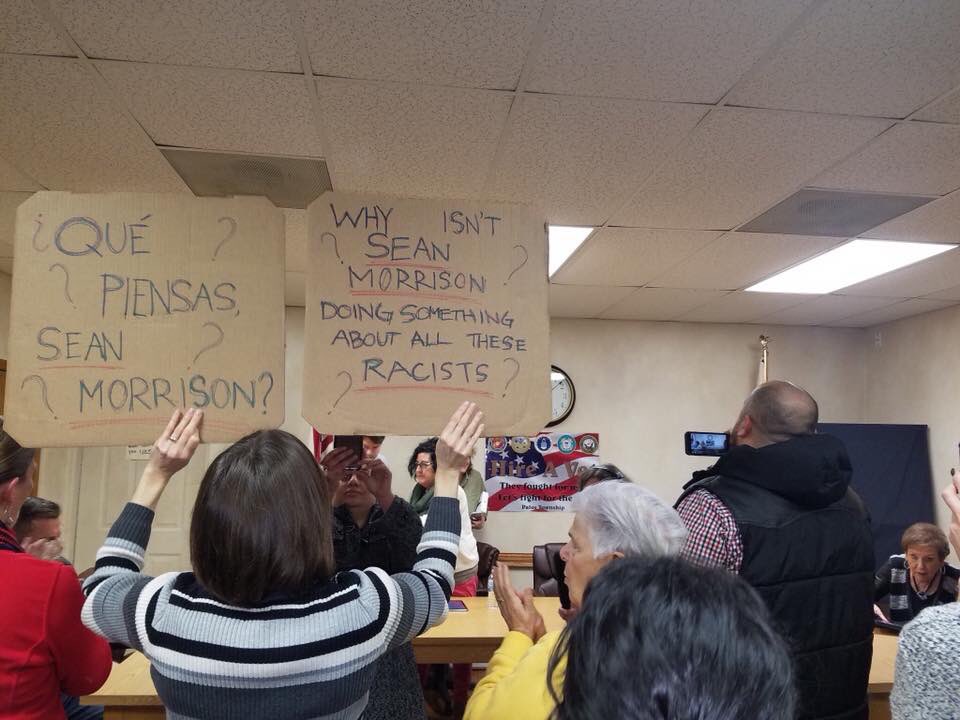 ¿QUÉ ?
? PIENSAS,
SEAN ?
? MORRISON?
WHY ISN'T
? SEAN ?
MORRISON
DOING SOMETHING
ABOUT ALL THESE
? RACISTS ?
Hire A Ve
They fought for
Let's fight for the
Palos Township